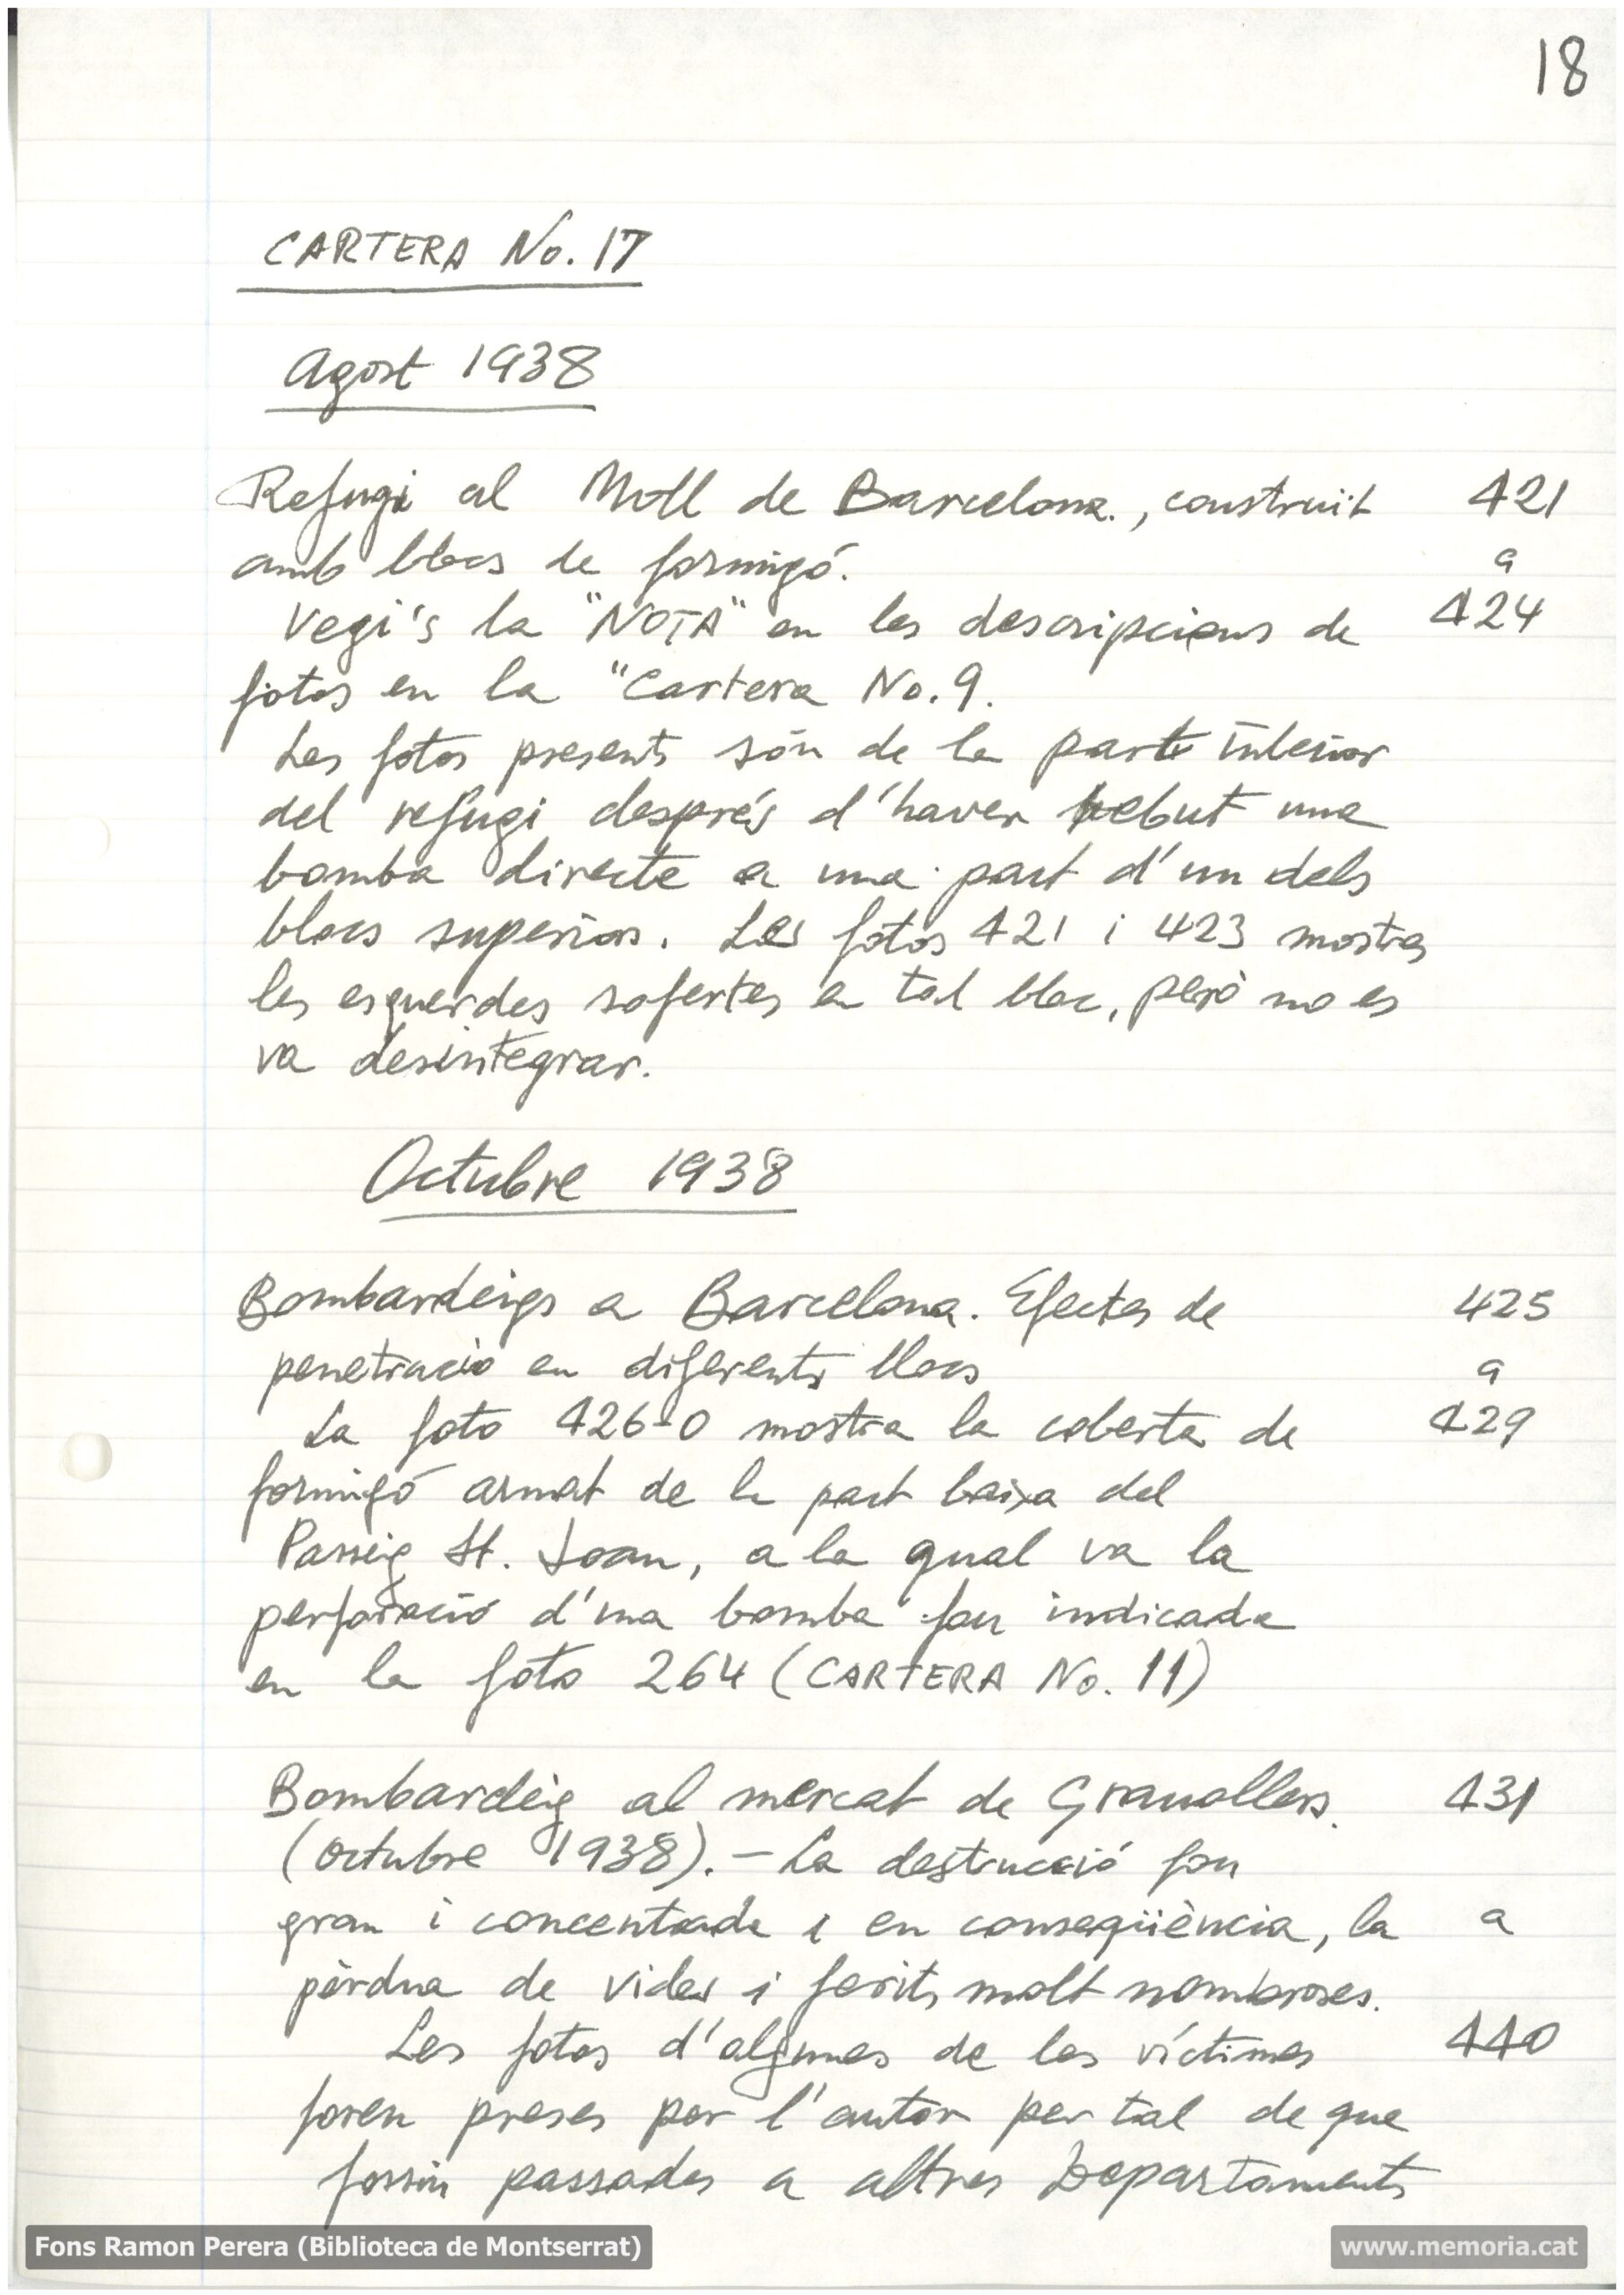 18
CARTERA No. 17
Agost 1938
Refugi al Moll de Barcelona., construït 421
amb blocs de formigó. a
Vegi's la "NOTA" en les descripcions de 424
fotos en la "Cartera No. 9.
Les fotos presents són de la part interior
del refugi després d'haver rebut una
bomba directe a una part d'un dels
blocs superiors. Les fotos 421 i 423 mostra
les esquerdes sofertes en tal bloc, però no es
va desintegrar.
Octubre 1938
Bombardeigs a Barcelona. Efectes de 425
penetració en diferents llocs a
La foto 426-0 mostra la coberta de 429
formigó armat de la part baixa del
Passeig St. Joan, a la qual va la
perforació d'una bomba fou indicada
en la foto 264 (CARTERA No. 11)
Bombardeig al mercat de Granollers. 431
(Octubre 1938).- La destrucció fou
gran i concentrada i en conseqüència, la a
pèrdua de vides i ferits molt nombroses.
Les fotos d'algunes de les víctimes 440
foren preses per l'autor per tal de que
fossin passades a altres Departaments
Fons Ramon Perera (Biblioteca de Montserrat)
www.memoria.cat